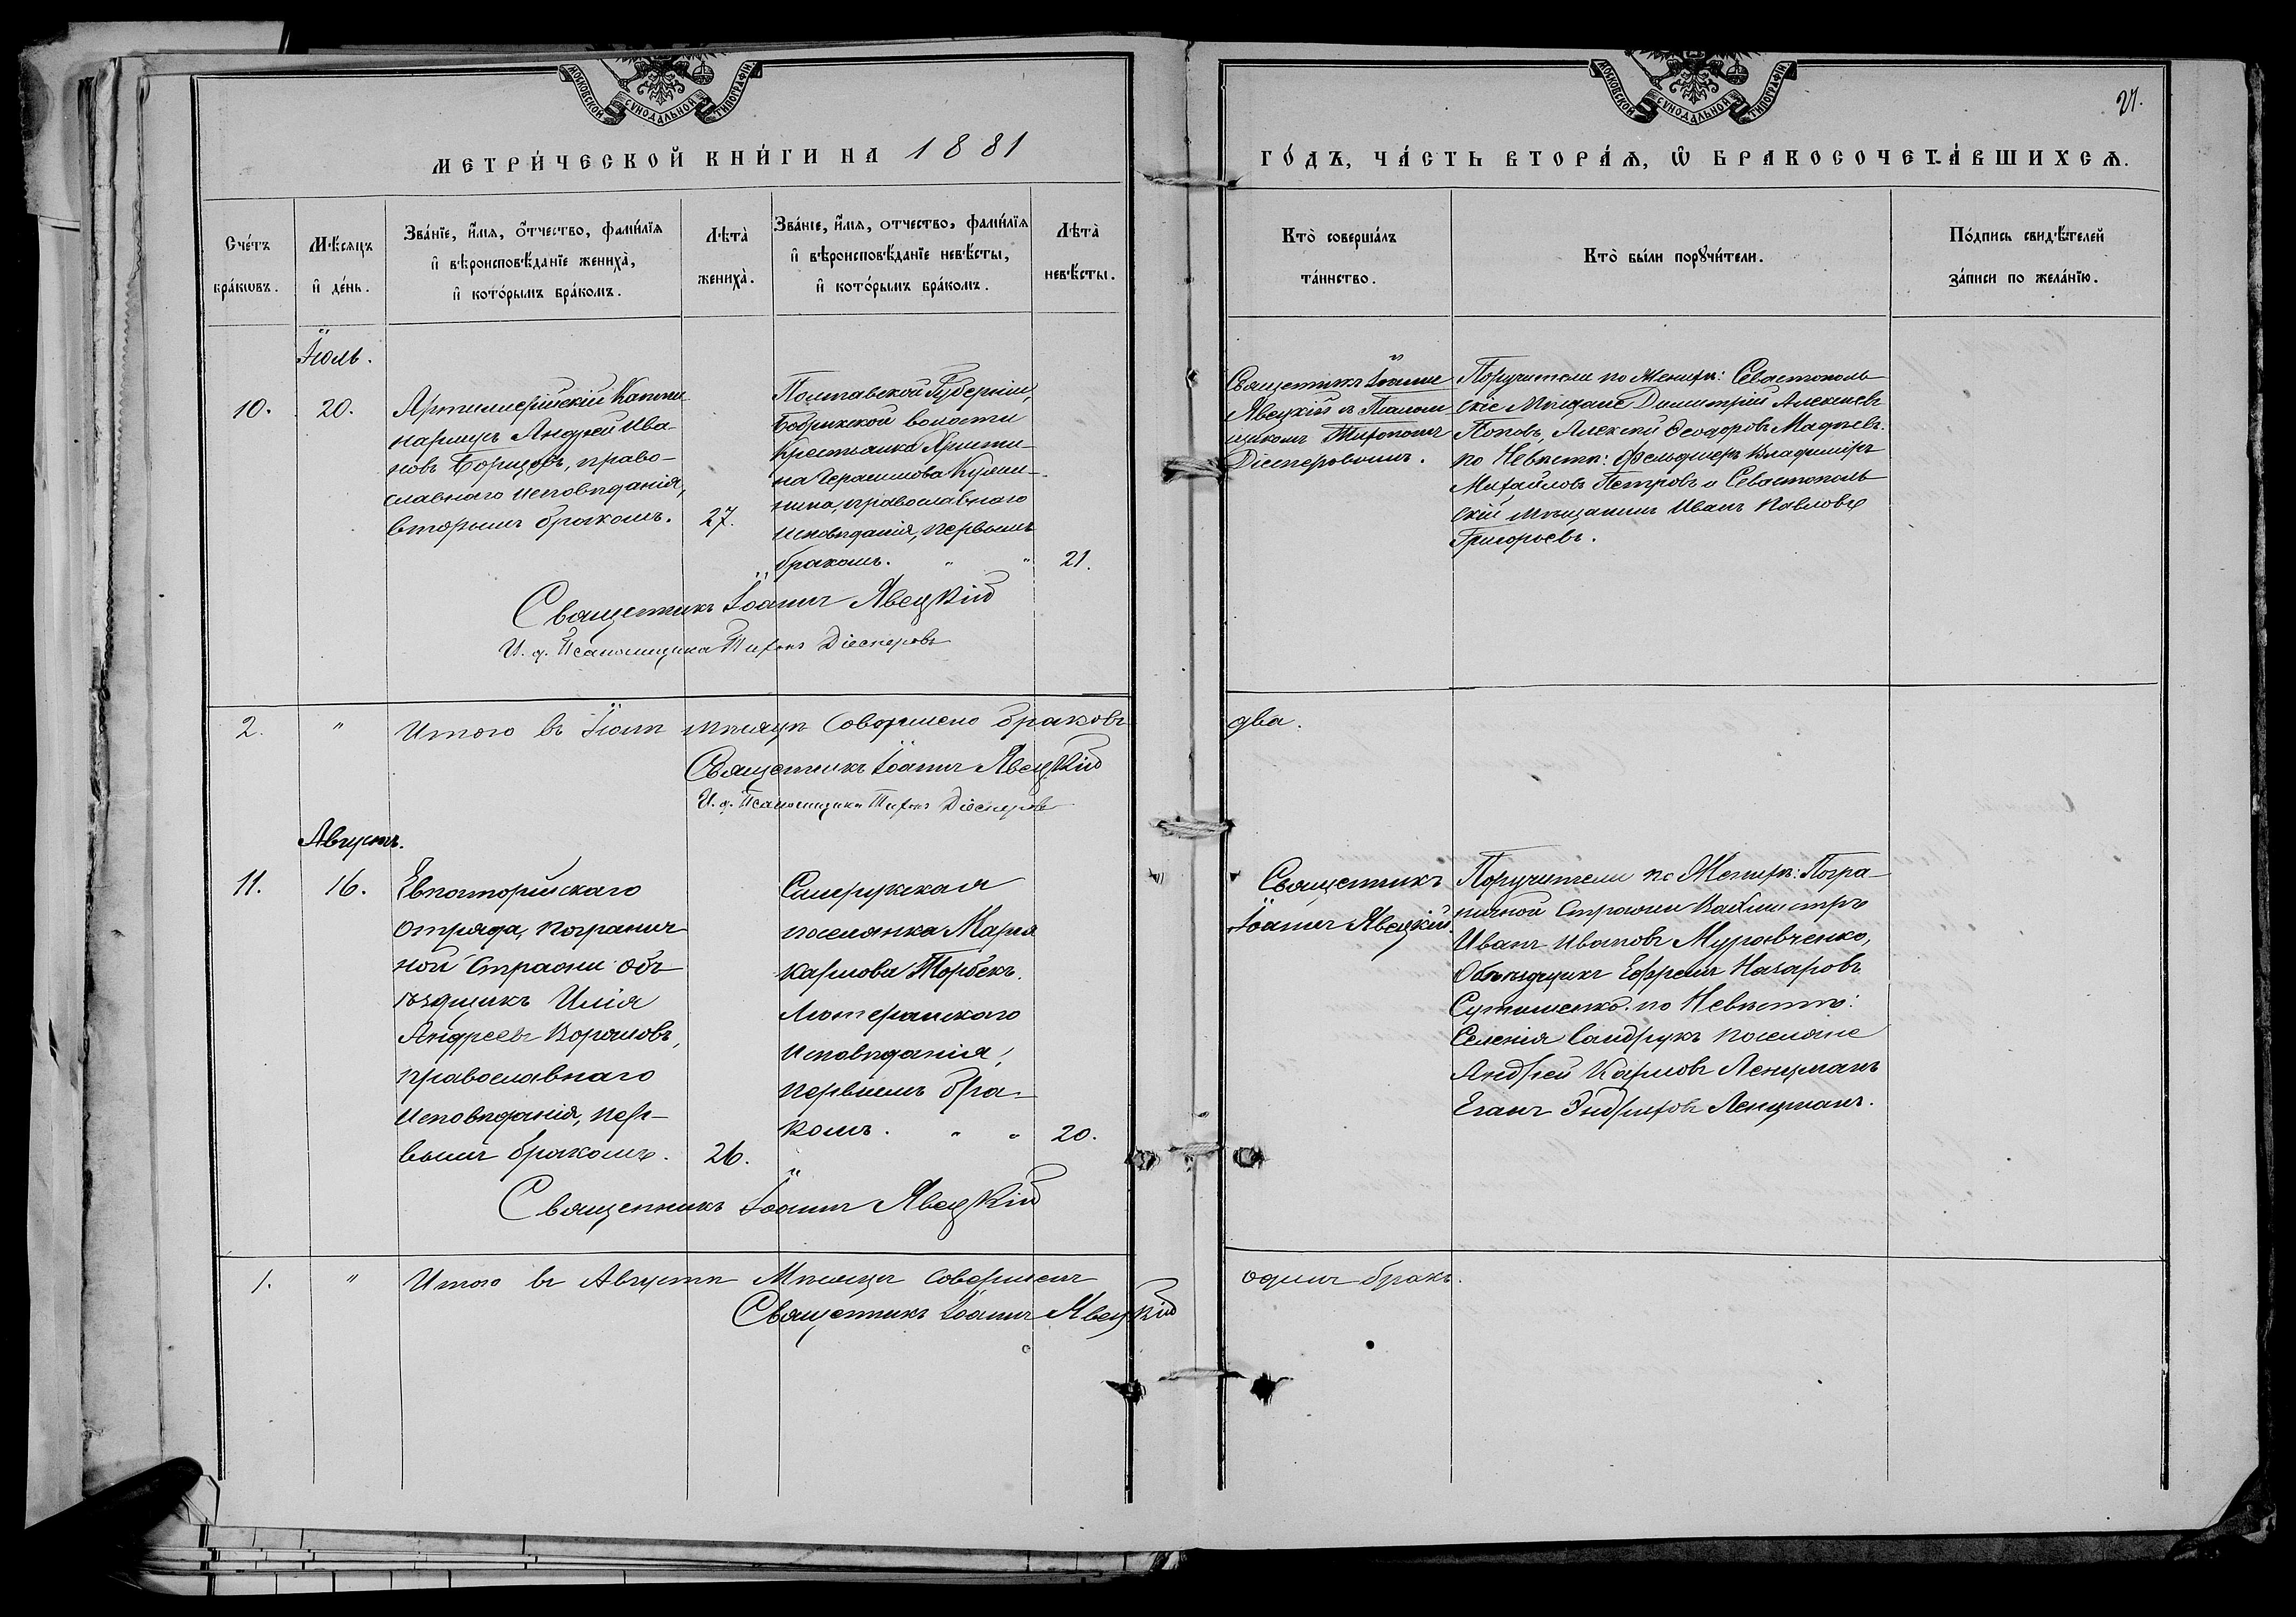 МОСКОВСКОЙ СѴНОДАЛЬНОЙ ТИПОГРАФІИ
МОСКОВСКОЙ СѴНОДАЛЬНОЙ ТИПОГРАФІИ
21.
МЕТРИ́ЧЕСКОЙ КНИ́ГИ НА 1881
ГО́ДЪ, ЧА́СТЬ ВТОРА́Ѧ, Ѡ҆ БРАКОСОЧЕТА́ВШИХСѦ.
Сче́тъ
бра́кѡвъ.
Мѣ́сяцъ
и҆ де́нь.
Зва́нїе, и҆́мя, о҆́тчество, фами́лїя
и҆ вѣроисповѣ́данїе жениха̀,
и҆ кото́рымъ бра́комъ.
Лѣта̀
жениха̀.
Зва́нїе, и҆́мя, отчество, фами́лїя
и҆ вѣроисповѣ́данїе невѣ́сты,
и҆ кото́рымъ бра́комъ.
Лѣта̀
невѣ́сты.
Кто̀ соверша́лъ
та́инство.
Кто̀ бы́ли порꙋчи́тели.
По́дпись свидѣ́телей
за́писи по жела́нїю.
Іюль.
10.
20.
Артиллерійскій
Андрей Ива-
новъ Борщовъ, право-
славнаго исповѣданія,
вторымъ бракомъ.
27.
Полтавской Губерніи,
волости
Крестьянка Христи-
на Герасимова
православнаго
исповѣданія, первымъ
бракомъ. " "
21.
Священникъ Іоаннъ
Явецкій съ Псалом
щикомъ Тихономъ
Діесперовымъ.
Поручители по Женихѣ: Севастополь
скіе Мѣщане Димитрій Алексѣевъ
Поповъ, Алексѣй Ѳеодоровъ
по Невѣстѣ: Фельдшеръ Владиміръ
Михайловъ Петровъ и Севастополь
скій мѣщанинъ Иванъ Павловъ
Григорьевъ.
Священникъ Іоаннъ Явецкій
И. д. Псаломщика Тихонъ Діесперовъ
2.
"
Итого въ Іюлѣ мѣсяцѣ совершено браковъ
два.
Священникъ Іоаннъ Явецкій
И. д. Псаломщика Тихонъ Діесперовъ
Августъ.
11.
16.
Евпаторійскаго
отряда, погранич
ной стражи Объ
ѣздчикъ Илія
Андреевъ Воролювъ,
православнаго
исповѣданія, пер-
вымъ бракомъ.
26.
поселянка Марія
Карлова Торбекъ.
Лютеранскаго
исповѣданія,
первымъ бра-
комъ. " "
20.
Священникъ
Іоаннъ Явецкій.
Поручители по Женихѣ: Погра-
ничной Стражи Вахмистръ
Иванъ Ивановъ Муравченко,
Объѣздчикъ Ефремъ Назаровъ
по Невѣстѣ:
Селенія поселяне
Андрей Карловъ Ленцманъ
Еганъ Эндриховъ Ленцманъ.
Священникъ Іоаннъ Явецкій
1.
"
Итого въ Августѣ Мѣсяцѣ совершенъ
одинъ бракъ.
Священникъ Іоаннъ Явецкій